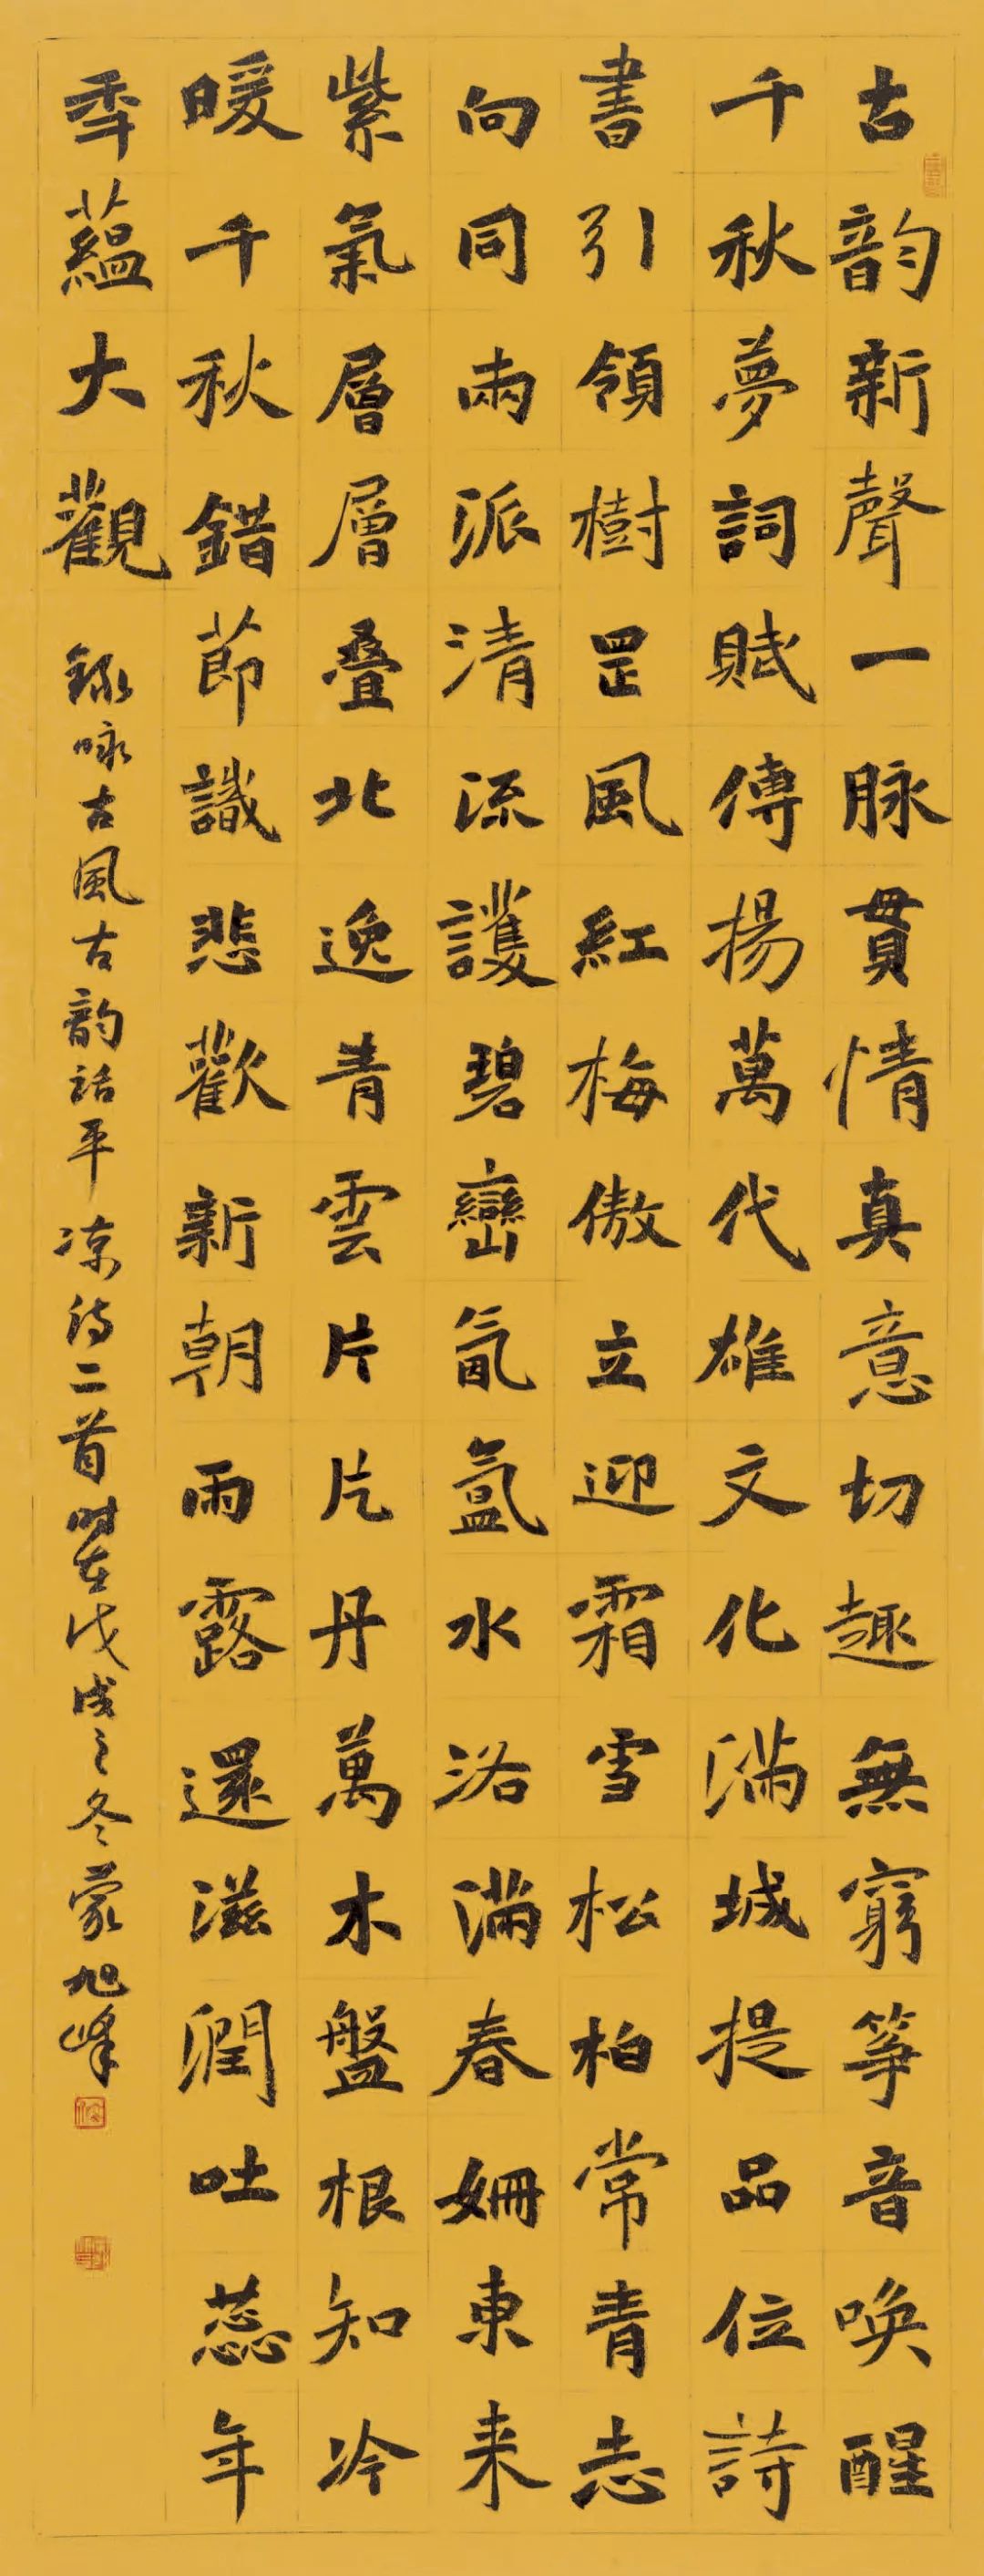 古韵新聲一脉貫情真意切趣無窮筝音唤醒
千秋夢詞賦傳揚萬代雄文化滿城提品位詩
書引領樹罡風紅梅傲立迎霜雪松柏常青志
向同兩派清流護碧巒氤氲水洛滿春姍東来
紫氣層層叠北逸青雲片片丹萬木盤根知冷
暖千秋錯節識悲歡新朝雨露還滋潤吐蕊年
季蘊大觀
錄咏古風古韵話平凉诗二首时在戊戌之冬蒙旭峰